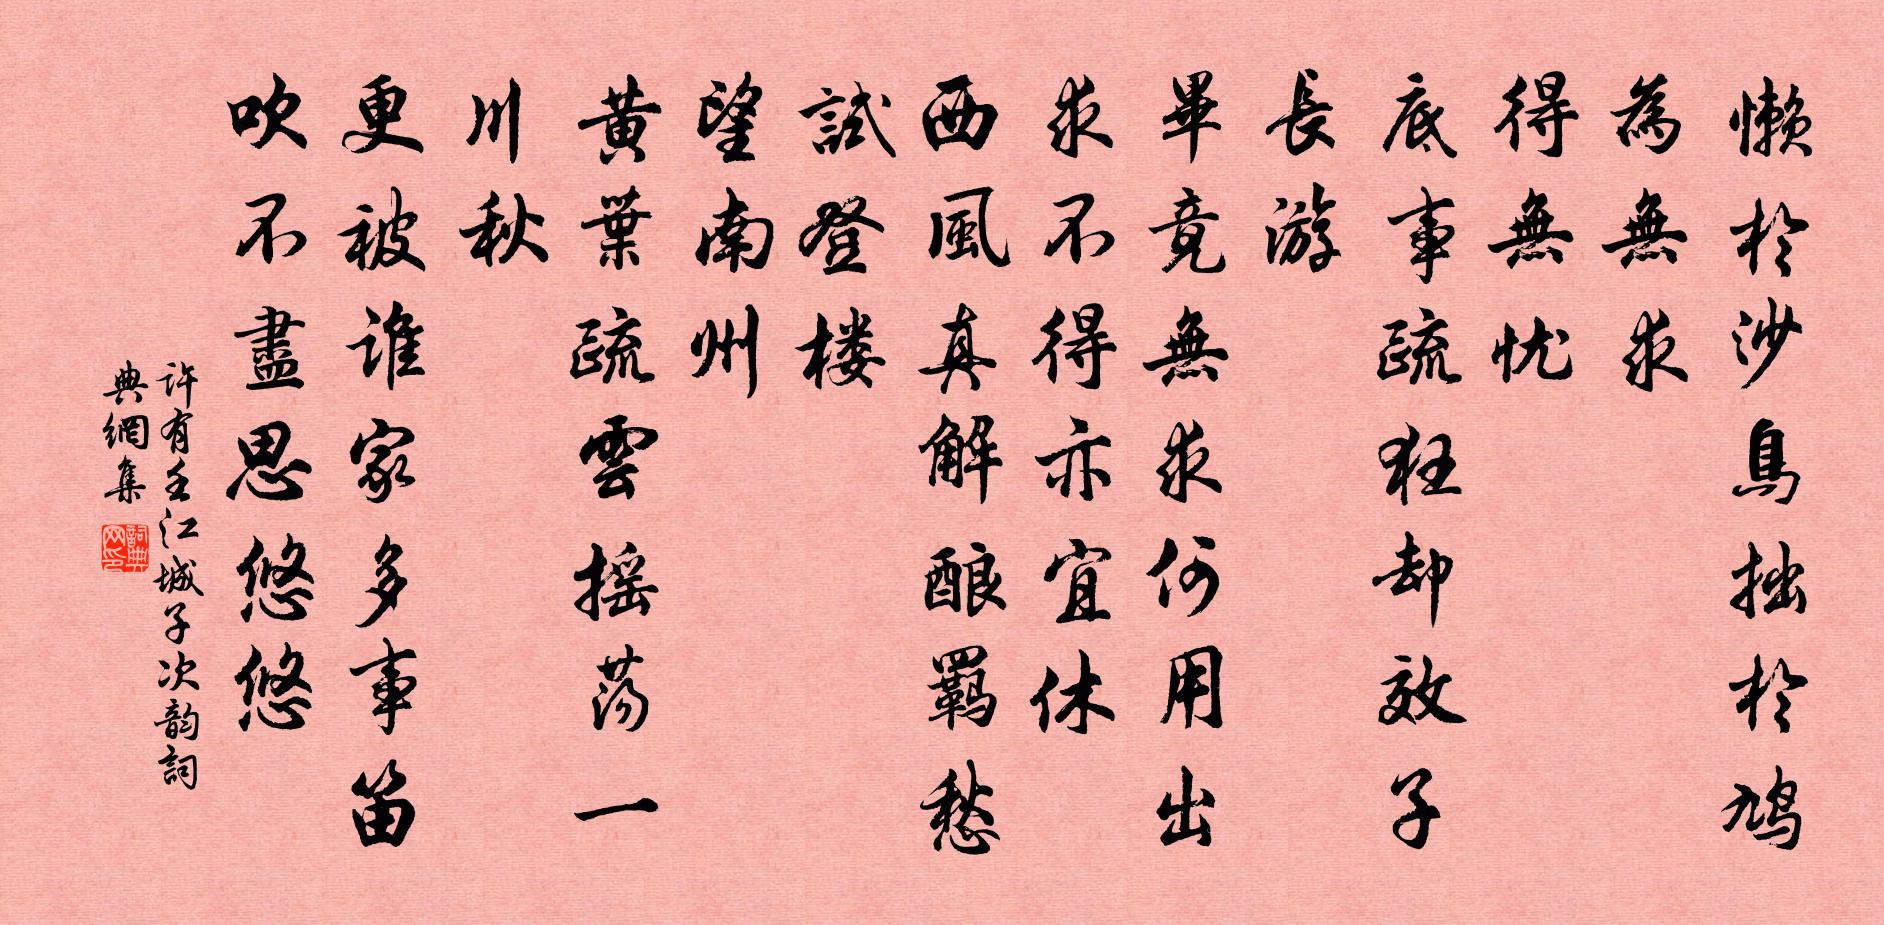 懶於沙鳥拙於鳩
為無求
得無忧
底事疏狂却效子
長游
畢竟無求何用出
求不得亦宜休
西風真解酿羁愁
試登楼
望南州
黄葉疏雲摇荡一
川秋
更被谁家多事笛
吹不盡思悠悠
許有壬江城子次韵詞
典網集
詞典网印